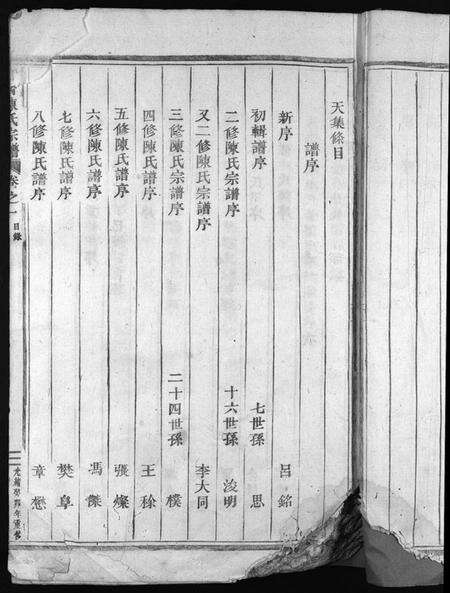 天集條目
譜序
新序 呂銘
初輯譜序 七世孫 思
二修陳氏宗譜序 十六世孫 浚明
又二修陳氏宗譜序 李大同
三修陳氏宗譜序 二十四世孫 樸
四修陳氏譜序 王稌
五修陳氏譜序 張燦
六修陳氏譜序 馮傑
七修陳氏譜序 樊阜
八修陳氏譜序 章懋
陳氏宗譜 卷之一 目錄
光緒癸卯年重修